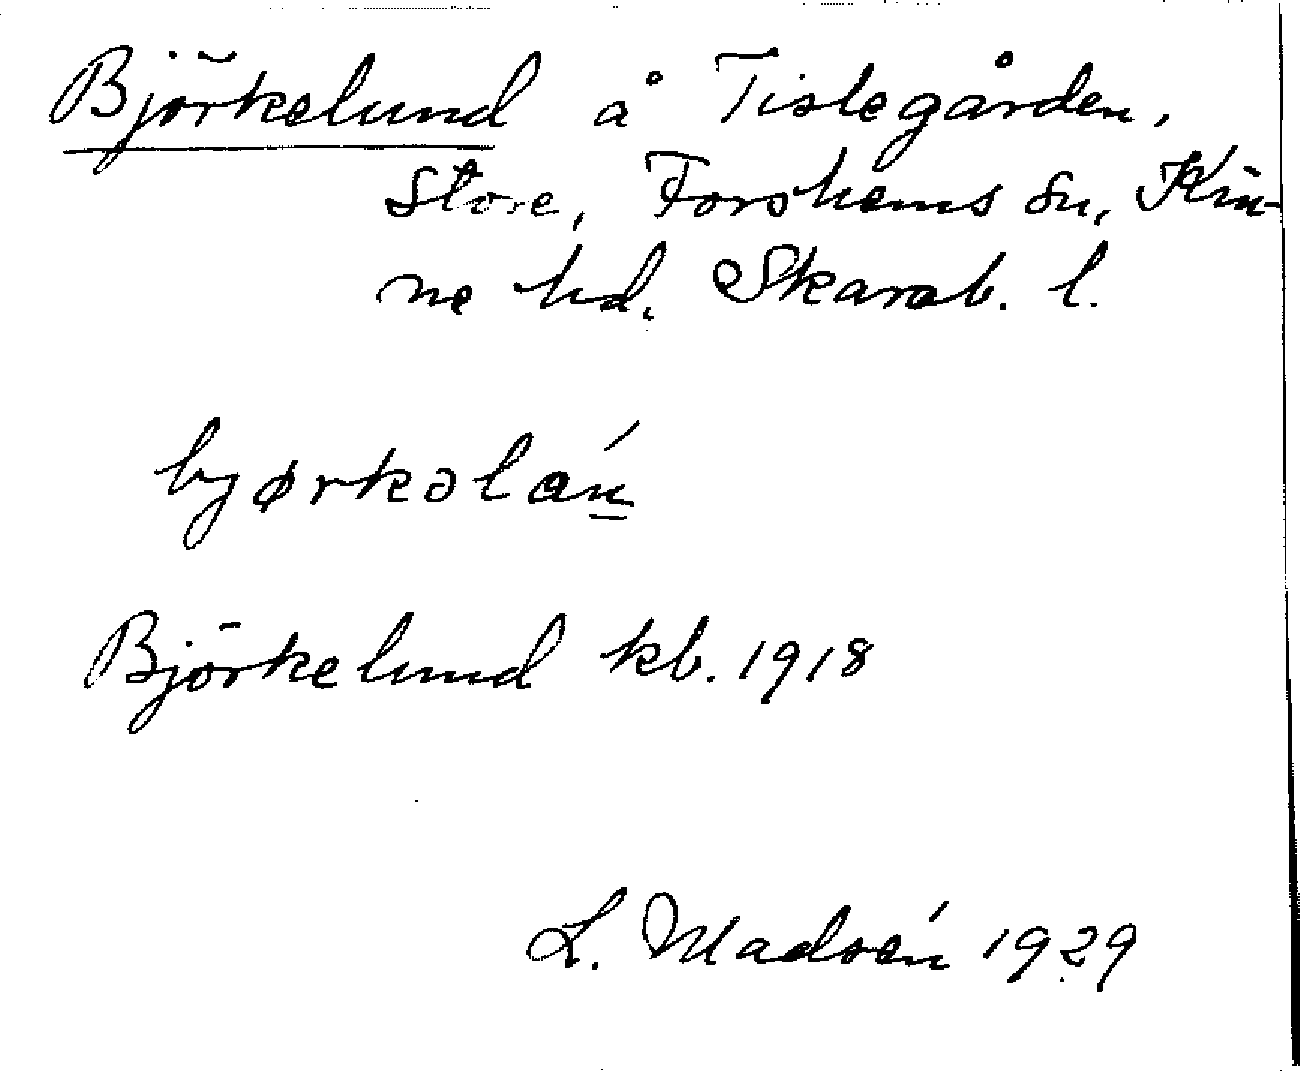 Björkelund å Tistegården,
Store, Forshems sn, Kin-
ne hd. Skarab. l.
bjørkəlán
Björkelund kb. 1918
L. Madsén 1929